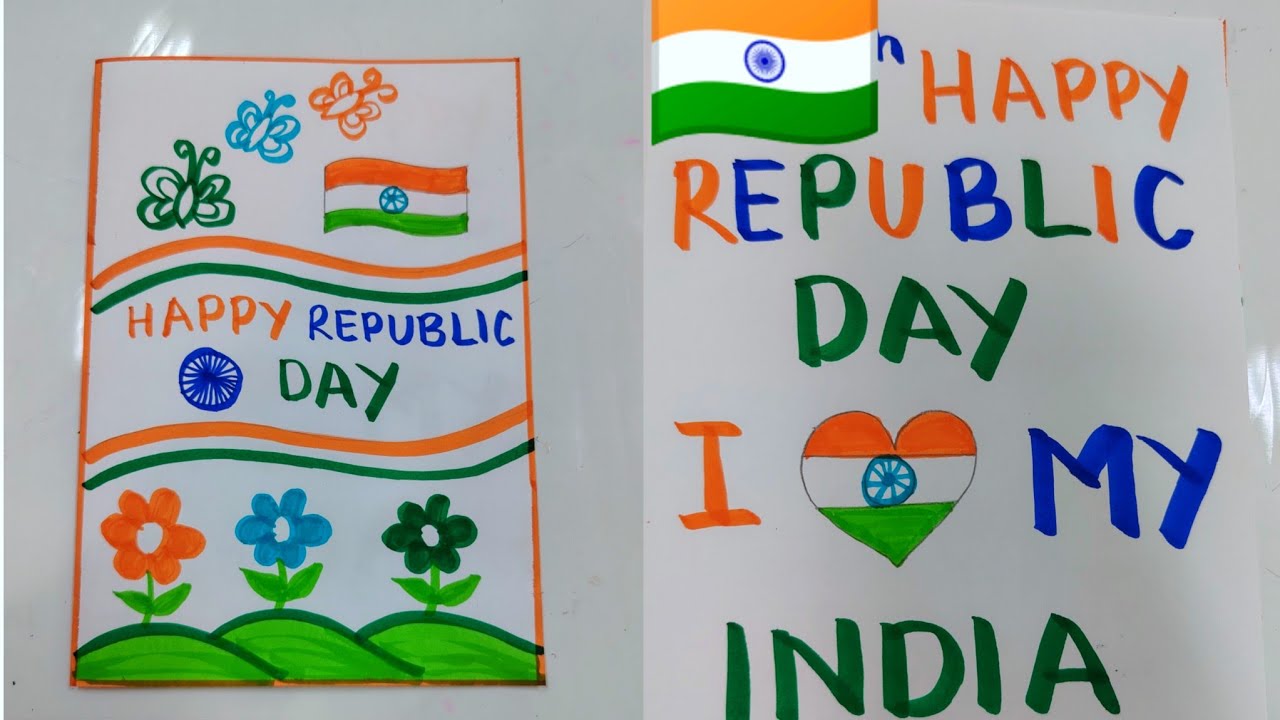 HAPPY REPUBLIC
DAY
h HAPPY
REPUBLIC
DAY
I MY
INDIA